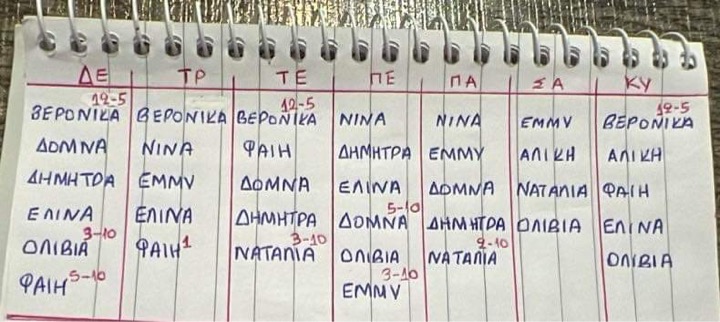 ΔΕ ΤΡ ΤΕ ΠΕ ΠΑ ΣΑ ΚΥ
12-5 12-5 12-5
ΒΕΡΟΝΙΚΑ ΒΕΡΟΝΙΚΑ ΒΕΡΟΝΙΚΑ ΝΙΝΑ ΝΙΝΑ ΕΜΜΥ ΒΕΡΟΝΙΚΑ
ΔΟΜΝΑ ΝΙΝΑ ΦΑΙΗ ΔΗΜΗΤΡΑ ΕΜΜΥ ΑΛΙΚΗ ΑΛΙΚΗ
ΔΗΜΗΤΡΑ ΕΜΜΥ ΔΟΜΝΑ ΕΛΙΝΑ ΔΟΜΝΑ ΝΑΤΑΛΙΑ ΦΑΙΗ
5-10
ΕΛΙΝΑ ΕΛΙΝΑ ΔΗΜΗΤΡΑ ΔΟΜΝΑ ΔΗΜΗΤΡΑ ΟΛΙΒΙΑ ΕΛΙΝΑ
3-10 1 3-10 2-10
ΟΛΙΒΙΑ ΦΑΙΗ ΝΑΤΑΛΙΑ ΟΛΙΒΙΑ ΝΑΤΑΛΙΑ ΟΛΙΒΙΑ
5-10 3-10
ΦΑΙΗ ΕΜΜΥ